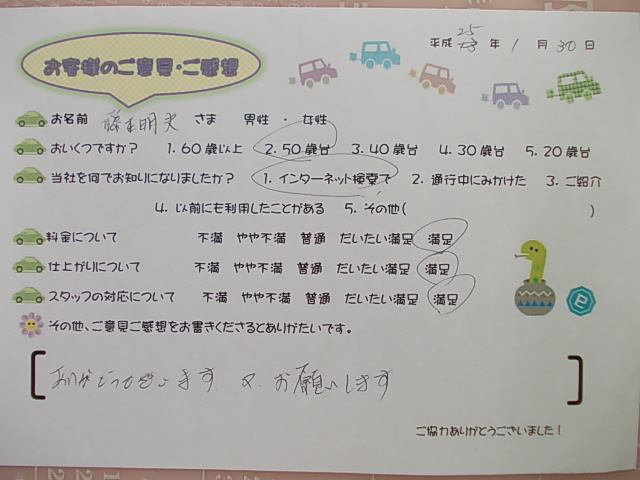 平成 25 年 1 月 30 日
お客様のご意見・ご感想
お名前 さま 男性 ・ 女性
おいくつですか? 1. 60歳以上 2. 50歳台 3. 40歳台 4. 30歳台 5. 20歳台
当社を何でお知りになりましたか? 1. インターネット検索で 2. 通行中にみかけた 3. ご紹介
4. 以前にも利用したことがある 5. その他( )
料金について 不満 やや不満 普通 だいたい満足 満足
仕上がりについて 不満 やや不満 普通 だいたい満足 満足
スタッフの対応について 不満 やや不満 普通 だいたい満足 満足
その他、ご意見ご感想をお書きくださるとありがたいです。
ありがとうございます 又、お願いします
ご協力ありがとうございました!